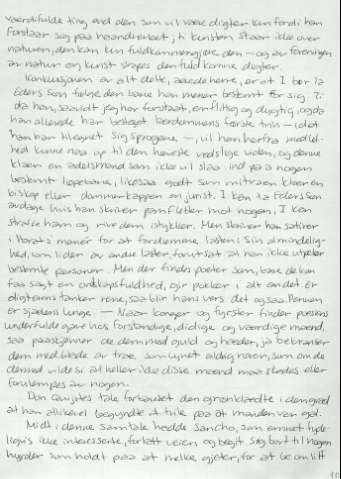 værdifulde ting end den som vil være digter kun fordi han
forstaar seg paa haandverket; ti kunsten staar ikke over
naturen, den kan kun fuldkommengjøre den — og av foreningen
av natur og kunst skapes den fuldkomne digter.
Konklusjonen av alt dette, sa herre, er at I bør la
Eders søn følge den bane han mener bestemt for sig. Ti
da han, saavidt jeg har forstaat, er flittig og dygtig, og da
han allerede har besteget lærdommens første trin — idet
han har tilegnet sig sprogene —, vil han herfra med let-
hed kunne naa op til den høieste verdslige viden, og denne
klær en adelsmand som ikke vil slaa ind paa nogen
bestemt løpebane, likesaa godt som mitraen klær en
biskop eller dommerkappen en jurist. I kan la Eders søn
avdage hvis han skriver pamfletter mot nogen, I kan
straffe ham og rive dem istykker. Men skriver han satirer
i Horats' manér for at fordømme lasten i sin almindelig-
hed, som liden av andre laster, forutsat at han ikke utpeker
bestemte personer. Men der findes poeter som, bare de kan
faa sagt en ondskapsfuldhed, gir pokker i alt andet. Er
digterens tanker rene, saa blir hans vers det ogsaa. Pennen
er sjælens tunge — Naar konger og fyrster finder poesiens
underfulde gave hos forstandige, dydige og værdige mænd,
saa paaskjønner de dem med guld og hæder, ja bekranser
dem med blade av træe, som lynet aldrig rører, som om de
dermed vilde si at heller ikke disse mænd maa skades eller
fornærmes av nogen.
Don Quijotes tale forbauset den grønnklædte i den grad
at han allikevel begyndte at tvile paa at manden var gal.
Midt i denne samtale hadde Sancho, som emnet tyde-
ligvis ikke interesserte, forlatt veien og begit sig bort til nogen
hyrder som holdt paa at melke gjeter, for at be om litt